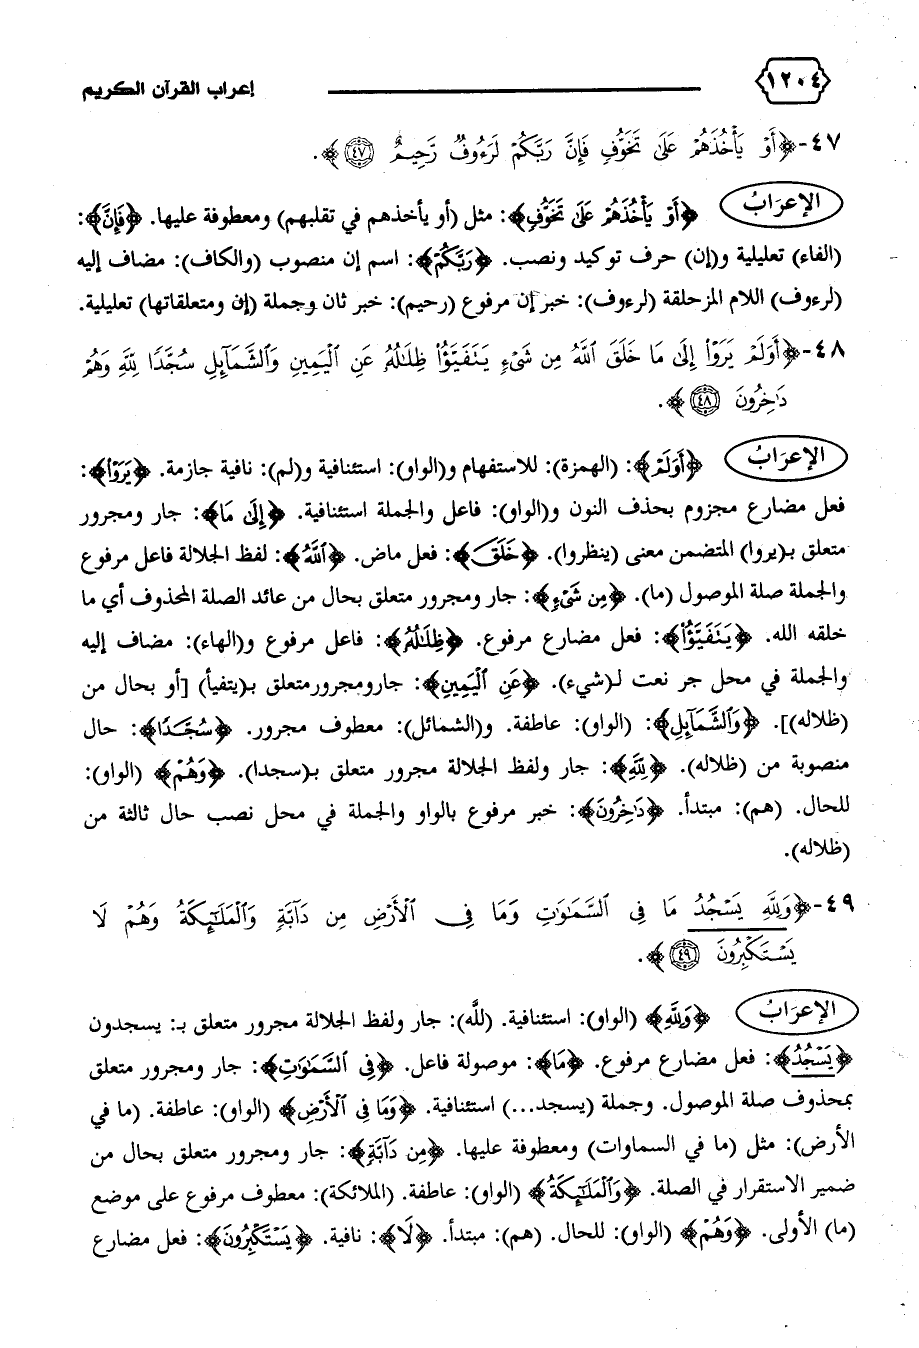 ١٢٠٤ إعراب القرآن الكريم
٤٧-﴿أَوْ يَأْخُذَهُمْ عَلَىٰ تَخَوُّفٍ فَإِنَّ رَبَّكُمْ لَرَءُوفٌ رَّحِيمٌ ٤٧﴾.
الإعرَابُ ﴿أَوْ يَأْخُذَهُمْ عَلَىٰ تَخَوُّفٍ﴾: مثل (أو يأخذهم في تقلبهم) ومعطوفة عليها. ﴿فَإِنَّ﴾:
(الفاء) تعليلية و(إن) حرف توكيد ونصب. ﴿رَبَّكُمْ﴾: اسم إن منصوب (والكاف): مضاف إليه
(لرءوف) اللام المزحلقة (لرءوف): خبر إن مرفوع (رحيم): خبر ثان وجملة (إن ومتعلقاتها) تعليلية.
٤٨-﴿أَوَلَمْ يَرَوْا۟ إِلَىٰ مَا خَلَقَ ٱللَّهُ مِن شَىْءٍ يَتَفَيَّؤُا۟ ظِلَـٰلُهُۥ عَنِ ٱلْيَمِينِ وَٱلشَّمَآئِلِ سُجَّدًا لِّلَّهِ وَهُمْ
دَٰخِرُونَ ٤٨﴾.
الإعرَابُ ﴿أَوَلَمْ﴾: (الهمزة): للاستفهام و(الواو): استئنافية و(لم): نافية جازمة. ﴿يَرَوْا۟﴾:
فعل مضارع مجزوم بحذف النون و(الواو): فاعل والجملة استئنافية. ﴿إِلَىٰ مَا﴾: جار ومجرور
متعلق بـ(يروا) المتضمن معنى (ينظروا). ﴿خَلَقَ﴾: فعل ماض. ﴿ٱللَّهُ﴾: لفظ الجلالة فاعل مرفوع
والجملة صلة الموصول (ما). ﴿مِن شَىْءٍ﴾: جار ومجرور متعلق بحال من عائد الصلة المحذوف أي ما
خلقه الله. ﴿يَتَفَيَّؤُا۟﴾: فعل مضارع مرفوع. ﴿ظِلَـٰلُهُۥ﴾: فاعل مرفوع و(الهاء): مضاف إليه
والجملة في محل جر نعت لـ(شيء). ﴿عَنِ ٱلْيَمِينِ﴾: جارومجرورمتعلق بـ(يتفيأ) [أو بحال من
(ظلاله)]. ﴿وَٱلشَّمَآئِلِ﴾: (الواو): عاطفة. و(الشمائل): معطوف مجرور. ﴿سُجَّدًا﴾: حال
منصوبة من (ظلاله). ﴿لِّلَّهِ﴾: جار ولفظ الجلالة مجرور متعلق بـ(سجدا). ﴿وَهُمْ﴾ (الواو):
للحال. (هم): مبتدأ. ﴿دَٰخِرُونَ﴾: خبر مرفوع بالواو والجملة في محل نصب حال ثالثة من
(ظلاله).
٤٩-﴿وَلِلَّهِ يَسْجُدُ مَا فِى ٱلسَّمَـٰوَٰتِ وَمَا فِى ٱلْأَرْضِ مِن دَآبَّةٍ وَٱلْمَلَـٰٓئِكَةُ وَهُمْ لَا
يَسْتَكْبِرُونَ ٤٩﴾.
الإعرَابُ ﴿وَلِلَّهِ﴾ (الواو): استئنافية. (لله): جار ولفظ الجلالة مجرور متعلق بـ: يسجدون
﴿يَسْجُدُ﴾: فعل مضارع مرفوع. ﴿مَا﴾: موصولة فاعل. ﴿فِى ٱلسَّمَـٰوَٰتِ﴾: جار ومجرور متعلق
بمحذوف صلة الموصول. وجملة (يسجد...) استئنافية. ﴿وَمَا فِى ٱلْأَرْضِ﴾ (الواو): عاطفة. (ما في
الأرض): مثل (ما في السماوات) ومعطوفة عليها. ﴿مِن دَآبَّةٍ﴾: جار ومجرور متعلق بحال من
ضمير الاستقرار في الصلة. ﴿وَٱلْمَلَـٰٓئِكَةُ﴾ (الواو): عاطفة. (الملائكة): معطوف مرفوع على موضع
(ما) الأولى. ﴿وَهُمْ﴾ (الواو): للحال. (هم): مبتدأ. ﴿لَا﴾: نافية. ﴿يَسْتَكْبِرُونَ﴾: فعل مضارع